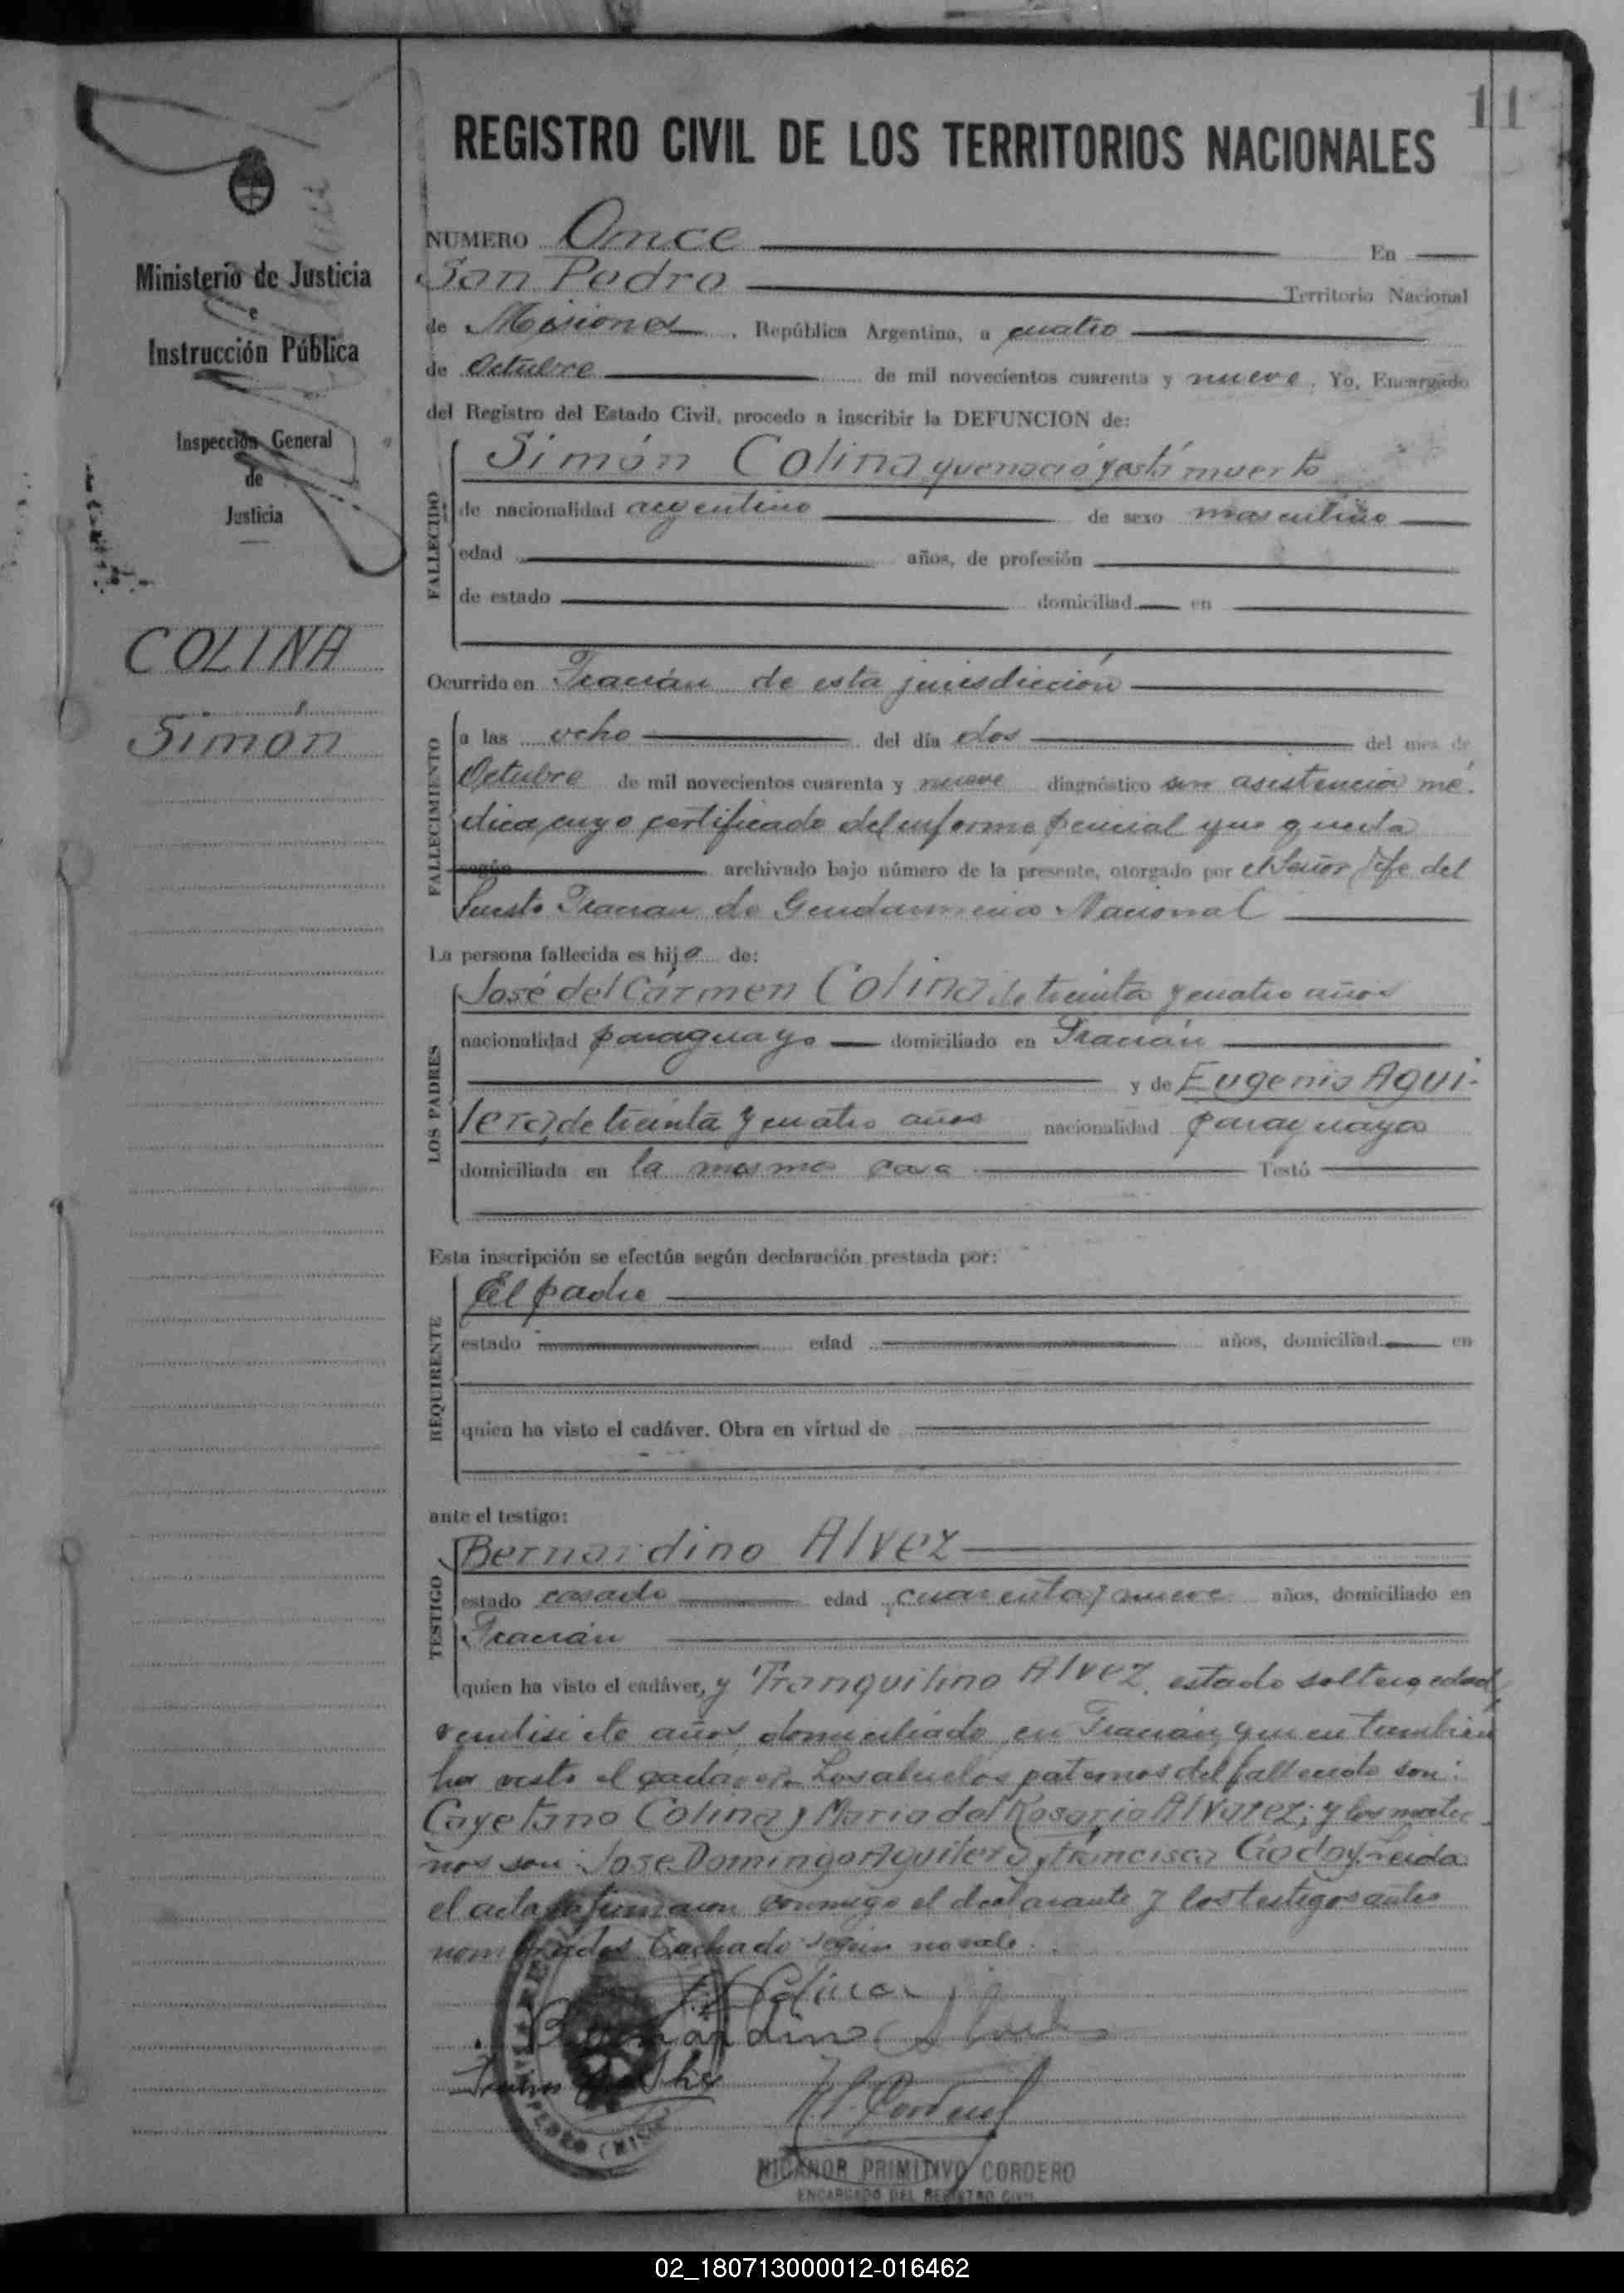 11
REGISTRO CIVIL DE LOS TERRITORIOS NACIONALES
Ministerio de Justicia
e
Instrucción Pública
Inspección General
de
Justicia
COLINA
Simón
NUMERO Once En
San Pedro Territorio Nacional
de Misiones, República Argentina, a cuatro
de Octubre de mil novecientos cuarenta y nueve. Yo, Encargado
del Registro del Estado Civil, procedo a inscribir la DEFUNCION de:
FALLECIDO
Simón Colina, que nació y está muerto
de nacionalidad argentino de sexo masculino
edad años, de profesión
de estado domiciliad en
Ocurrido en Fracrán de esta jurisdicción
FALLECIMIENTO
a las ocho del día dos del mes de
Octubre de mil novecientos cuarenta y nueve diagnóstico sin asistencia mé-
dica, cuyo certificado del informe que queda
según archivado bajo número de la presente, otorgado por el Señor Jefe del
Puesto Fracran de Gendarmeria Nacional
La persona fallecida es hijo de:
LOS PADRES
José del Cármen Colina, de treinta y cuatro años
nacionalidad paraguayo domiciliado en Fracrán
y de Eugenia Agui-
lera, de treinta y cuatro años nacionalidad paraguaya
domiciliada en la misma casa Testó
Esta inscripción se efectúa según declaración prestada por:
REQUIRENTE
El padre
estado edad años, domiciliad en
quien ha visto el cadáver. Obra en virtud de
ante el testigo:
TESTIGO
Bernardino Alvez
estado casado edad cuarenta y nueve años, domiciliado en
Fracrán
quien ha visto el cadáver, y Tranquilino Alvez, estado soltero, edad
veintisiete años, domiciliado en Fracrán, quien también
ha visto el cadaver. Los abuelos paternos del fallecido son:
Cayetano Colina y María del Rosario Alvarez; y los mater-
nos son: José Domingo Aguilera y Francisca Godoy. Leida
el acta la firmaron conmigo el declarante y los testigos antes
nombrados. Tachado: según no vale.
Colina
Bernardino
PEDRO (MIS
NICANOR PRIMITIVO CORDERO
ENCARGADO DEL REGISTRO CIVIL
02_180713000012-016462